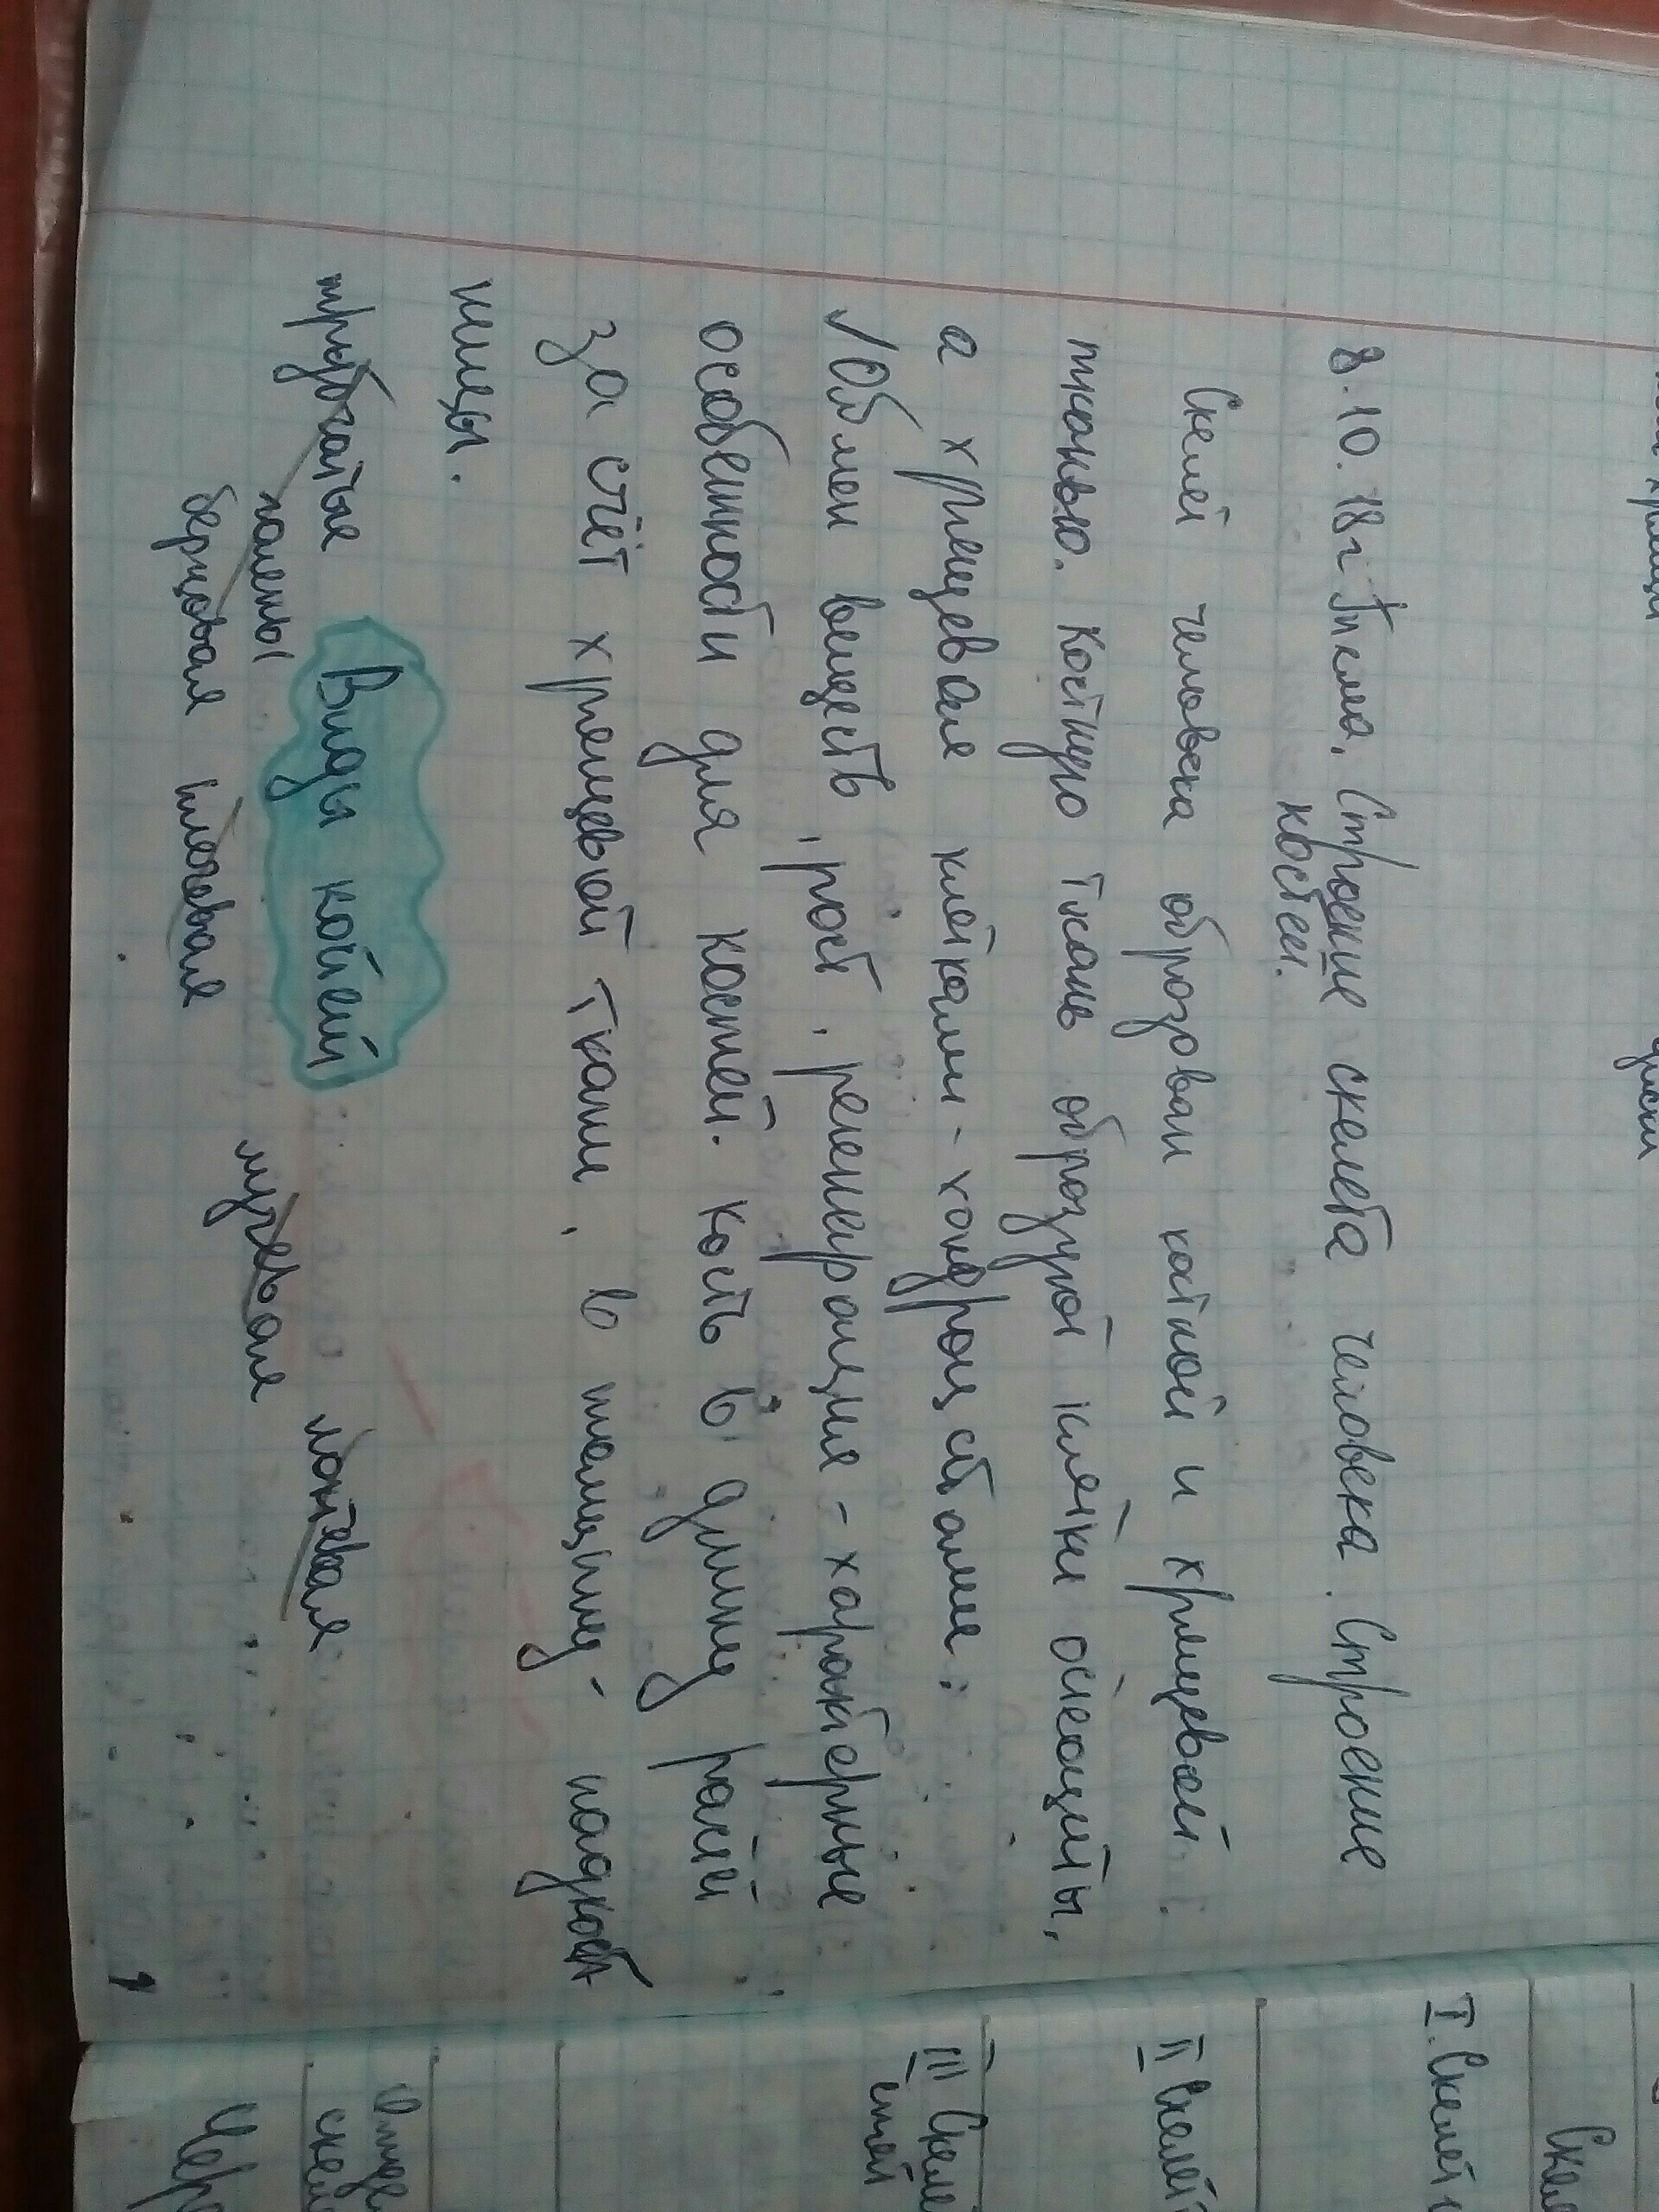 8.10.18г Тема. Строение скелета человека. Строение
костей.
Скелет человека образован костной и хрящевой
тканью. Костную ткань образуют клетки остеоциты,
а хрящевая клетками - хондроцитами.
✓Обмен веществ, рост, регенерация - характерные
особенности для костей. Кость в длину растёт
за счёт хрящевой ткани, в толщину - надкост
ницы.
трубчатые Виды костей
берцовая плечевая лучевая локтевая
I. Скелет
II Скелет
III Скеле